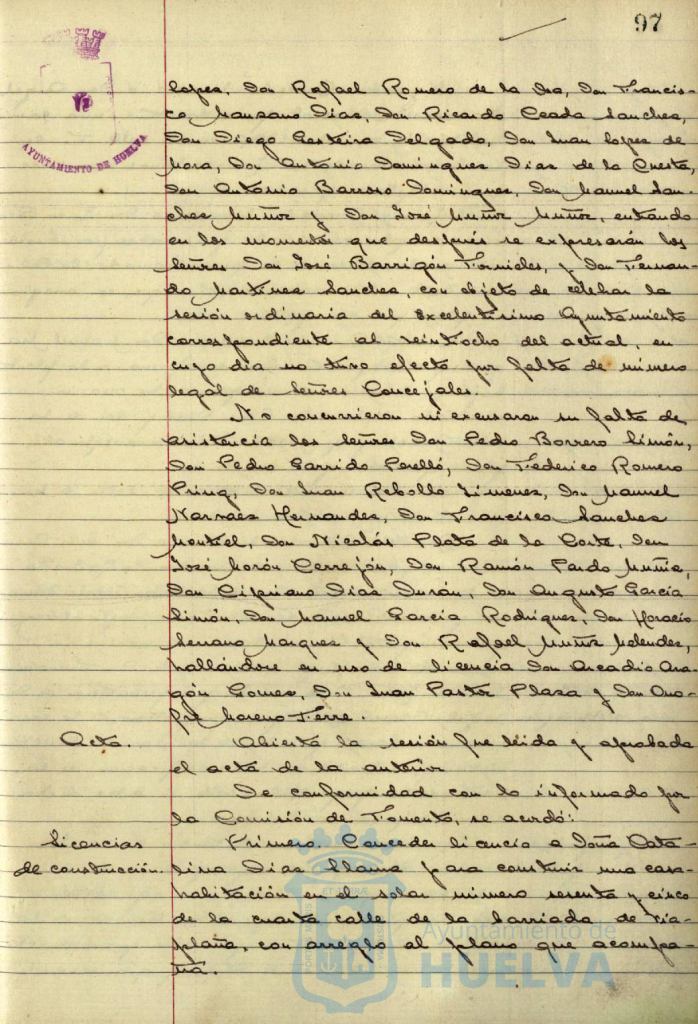 97
AYUNTAMIENTO DE HUELVA
lopez, Don Rafael Romero de la Isa, Don Francis-
co Manzano Dias, Don Ricardo Ceada Sanches,
Don Diego Garteira Delgado, Don Juan Lopes de
Mora, Don Antonio Domingues Dias de la Cuesta,
Don Antonio Barroso Domingues, Don Manuel San-
ches Muñoz y Don José Muñoz Muñoz, entrando
en los momentos que después se expresarán los
señores Don José Barrigón Fornieles, y Don Fernan-
do Martines Sanches, con objeto de celebrar la
sesión ordinaria del Excelentísimo Ayuntamiento
correspondiente al veintiocho del actual, en
cuyo dia no tuvo efecto por falta de número
legal de Señores Concejales.
No concurrieron ni excusaron su falta de
asistencia los señores Don Pedro Borrero Limón,
Don Pedro Garrido Perelló, Don Federico Romero
Don Juan Rebollo Jimenes, Don Manuel
Narváes Hernandes, Don Francisco Sanches
Montiel, Don Nicolás Plata de la Corte, Don
José Morón Cerrejón, Don Ramón Pardo
Don Cipriano Dias Durán, Don Augusto García
Limón, Don Manuel García Rodrigues, Don Horacio
Serrano Marques y Don Rafael Muñoz Melendes,
hallándose en uso de licencia Don Arcadio Ara-
gón Gomes, Don Juan Pastor Plaza y Don Ono-
fre Moreno Ferre.
Acta.
Abierta la sesión fue leida y aprobada
el acta de la anterior
De conformidad con lo informado por
la Comisión de Fomento, se acordó:
Licencias
de construcción.
Primero. Conceder licencia a Doña Cata-
lina Dias Llama para construir una casa
habitación en el solar número sesenta y cinco
de la cuarta calle de la barriada de Via-
plana, con arreglo al plano que acompa-
ña.
Ayuntamiento de
HUELVA